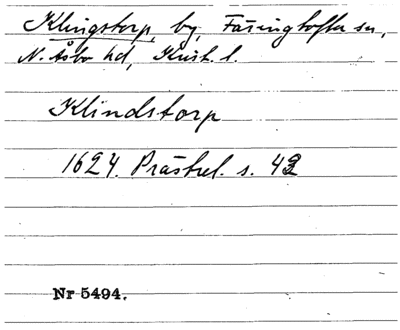 Klingstorp, by, Färingtofta sn,
N. Åsbo hd, Krist. l.
Klindstorp
1624. Prästrel. s. 42
Nr 5494.